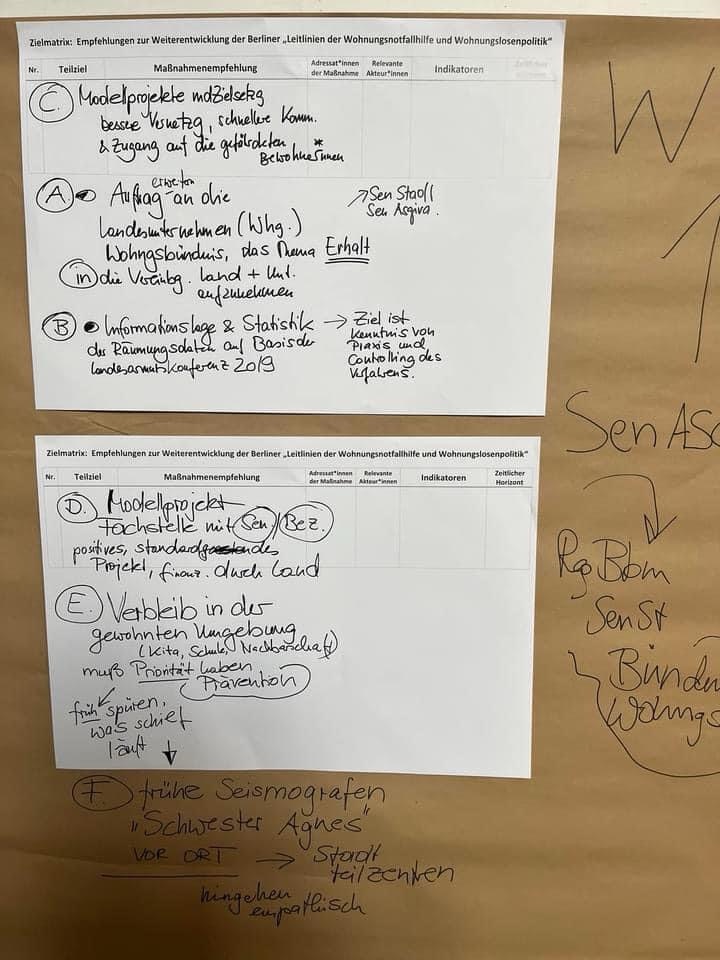 Zielmatrix: Empfehlungen zur Weiterentwicklung der Berliner „Leitlinien der Wohnungsnotfallhilfe und Wohnungslosenpolitik“
Nr. Teilziel Maßnahmenempfehlung Adressat*innen der Maßnahme Relevante Akteur*innen Indikatoren Zeitlicher Horizont
C. Modellprojekte m Zielsetzg
bessere Vernetzg, schnellere Komm.
& Zugang auf die gefährdeten *
Bewohnerinnen
A. erweitern
Auftrag an die
Landesunternehmen (Whg.)
Wohngsbündnis, das Thema Erhalt
in die Vereinbg. Land + Unt.
aufzunehmen
↗ Sen Stadt
Sen Asgiva.
B • Informationslage & Statistik
der Räumungsdaten auf Basis der
Landesarmutskonferenz 2019
→ Ziel ist
Kenntnis von
Praxis und
Controlling des
Verfahrens.
Zielmatrix: Empfehlungen zur Weiterentwicklung der Berliner „Leitlinien der Wohnungsnotfallhilfe und Wohnungslosenpolitik“
Nr. Teilziel Maßnahmenempfehlung Adressat*innen der Maßnahme Relevante Akteur*innen Indikatoren Zeitlicher Horizont
D. Modellprojekt
Fachstelle mit Sen/Bez.
positives,
Projekt, finanz. durch Land
E. Verbleib in der
gewohnten Umgebung
(Kita, Schule, Nachbarschaft)
muß Priorität haben
Prävention
früh spüren,
was schief
läuft ↓
F. frühe Seismografen
"Schwester Agnes"
VOR ORT → Stadt
teilzentren
hingehen
empathisch
W
Sen AS
Rg Bbm
Sen St
Bünd
Wohngs